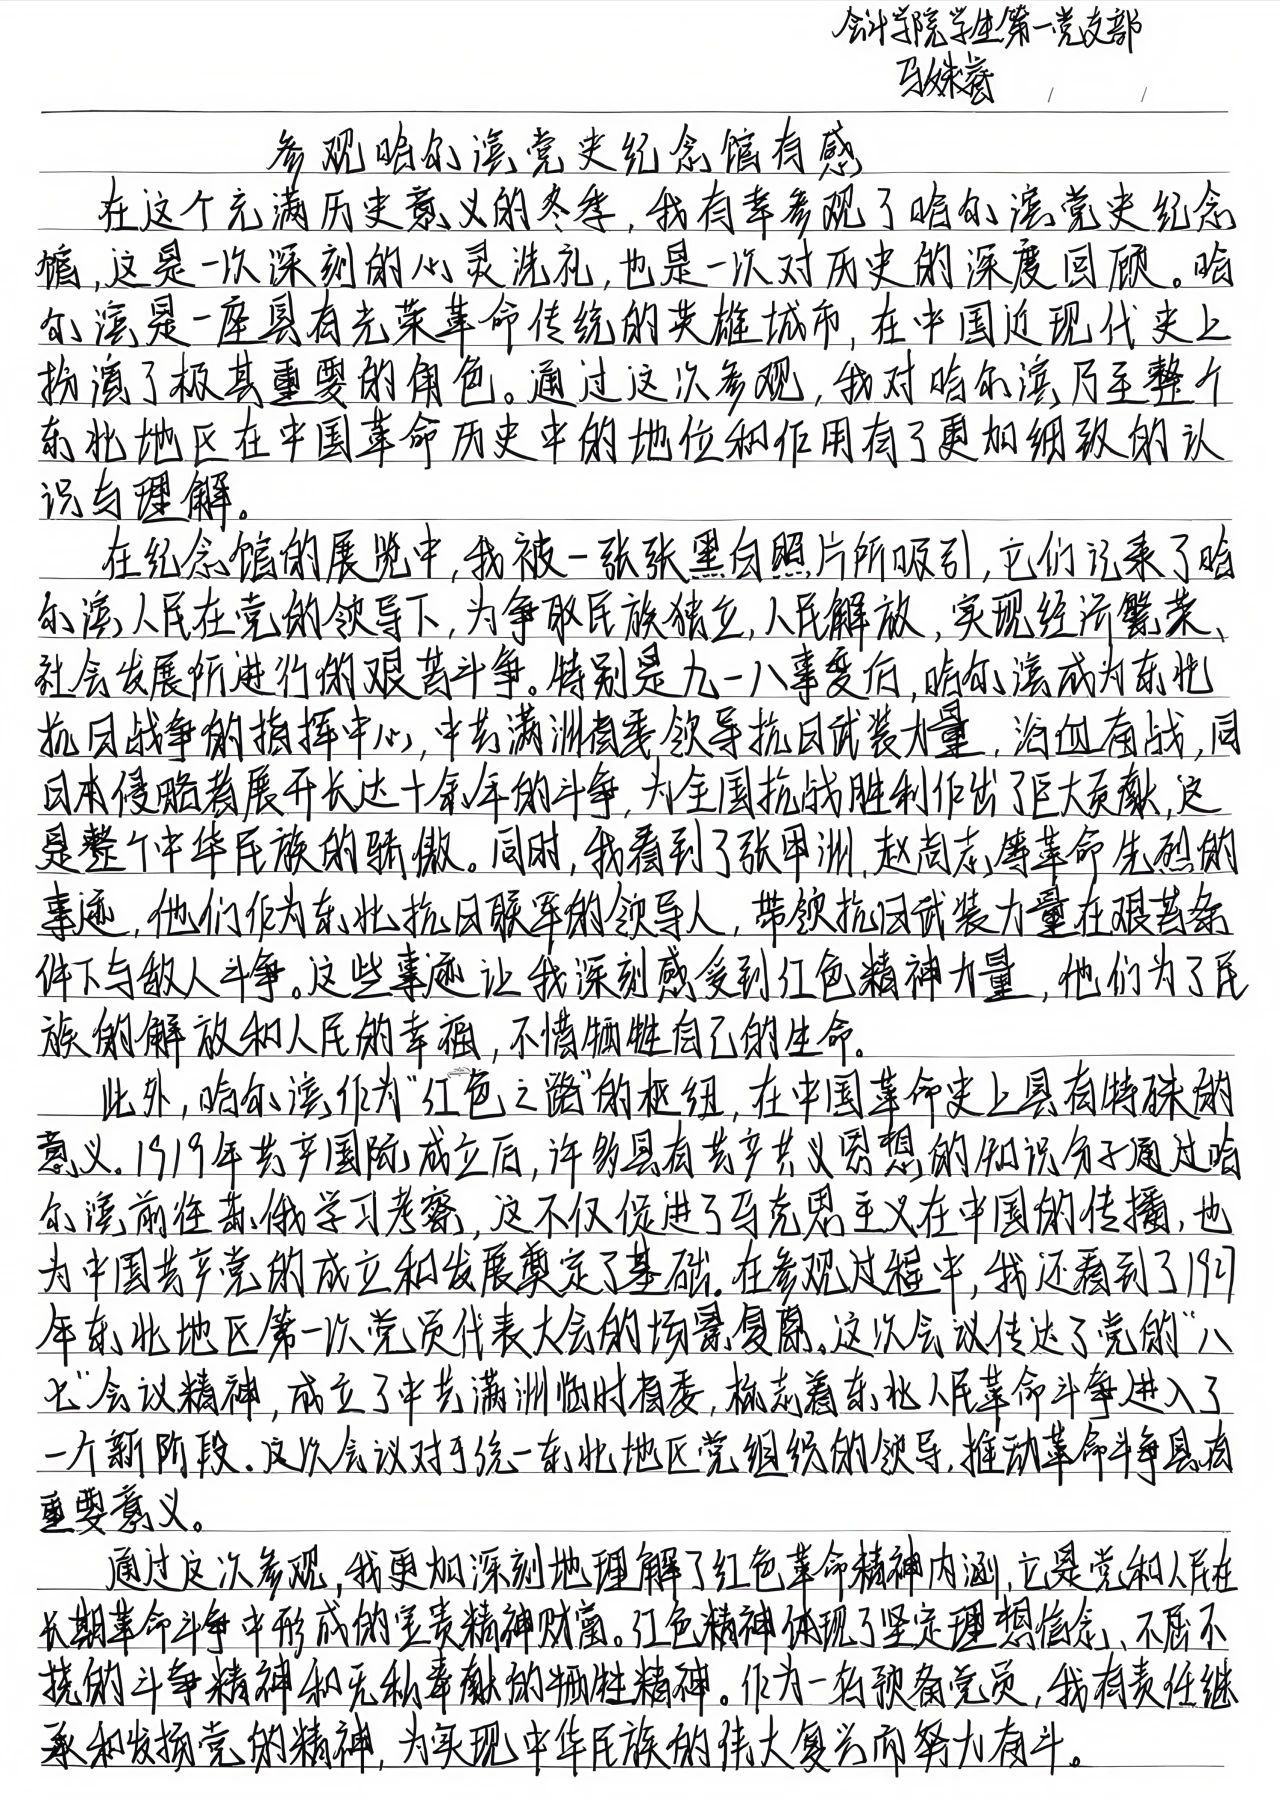 会计学院学生第一党支部
马姝蓉
参观哈尔滨党史纪念馆有感
在这个充满历史意义的冬季，我有幸参观了哈尔滨党史纪念
馆，这是一次深刻的心灵洗礼，也是一次对历史的深度回顾。哈
尔滨是一座具有光荣革命传统的英雄城市，在中国近现代史上
扮演了极其重要的角色。通过这次参观，我对哈尔滨乃至整个
东北地区在中国革命历史中的地位和作用有了更加细致的认
识与理解。
在纪念馆的展览中，我被一张张黑白照片所吸引，它们记录了哈
尔滨人民在党的领导下，为争取民族独立，人民解放，实现经济繁荣、
社会发展所进行的艰苦斗争。特别是九一八事变后，哈尔滨成为东北
抗日战争的指挥中心，中共满洲省委领导抗日武装力量，浴血奋战，同
日本侵略者展开长达十余年的斗争，为全国抗战胜利作出了巨大贡献，这
是整个中华民族的骄傲。同时，我看到了张甲洲、赵尚志等革命先烈的
事迹，他们作为东北抗日联军的领导人，带领抗日武装力量在艰苦条
件下与敌人斗争。这些事迹让我深刻感受到红色精神力量，他们为了民
族的解放和人民的幸福，不惜牺牲自己的生命。
此外，哈尔滨作为“红色之路”的枢纽，在中国革命史上具有特殊的
意义。1919年共产国际成立后，许多具有共产共义思想的知识分子通过哈
尔滨前往苏俄学习考察，这不仅促进了马克思主义在中国的传播，也
为中国共产党的成立和发展奠定了基础。在参观过程中，我还看到了1927
年东北地区第一次党员代表大会的场景复原。这次会议传达了党的“八
七”会议精神，成立了中共满洲临时省委，标志着东北人民革命斗争进入了
一个新阶段。这次会议对于统一东北地区党组织的领导，推动革命斗争具有
重要意义。
通过这次参观，我更加深刻地理解了红色革命精神内涵，它是党和人民在
长期革命斗争中形成的宝贵精神财富。红色精神体现了坚定理想信念、不屈不
挠的斗争精神和无私奉献的牺牲精神。作为一名预备党员，我有责任继
承和发扬党的精神，为实现中华民族的伟大复兴而努力奋斗。